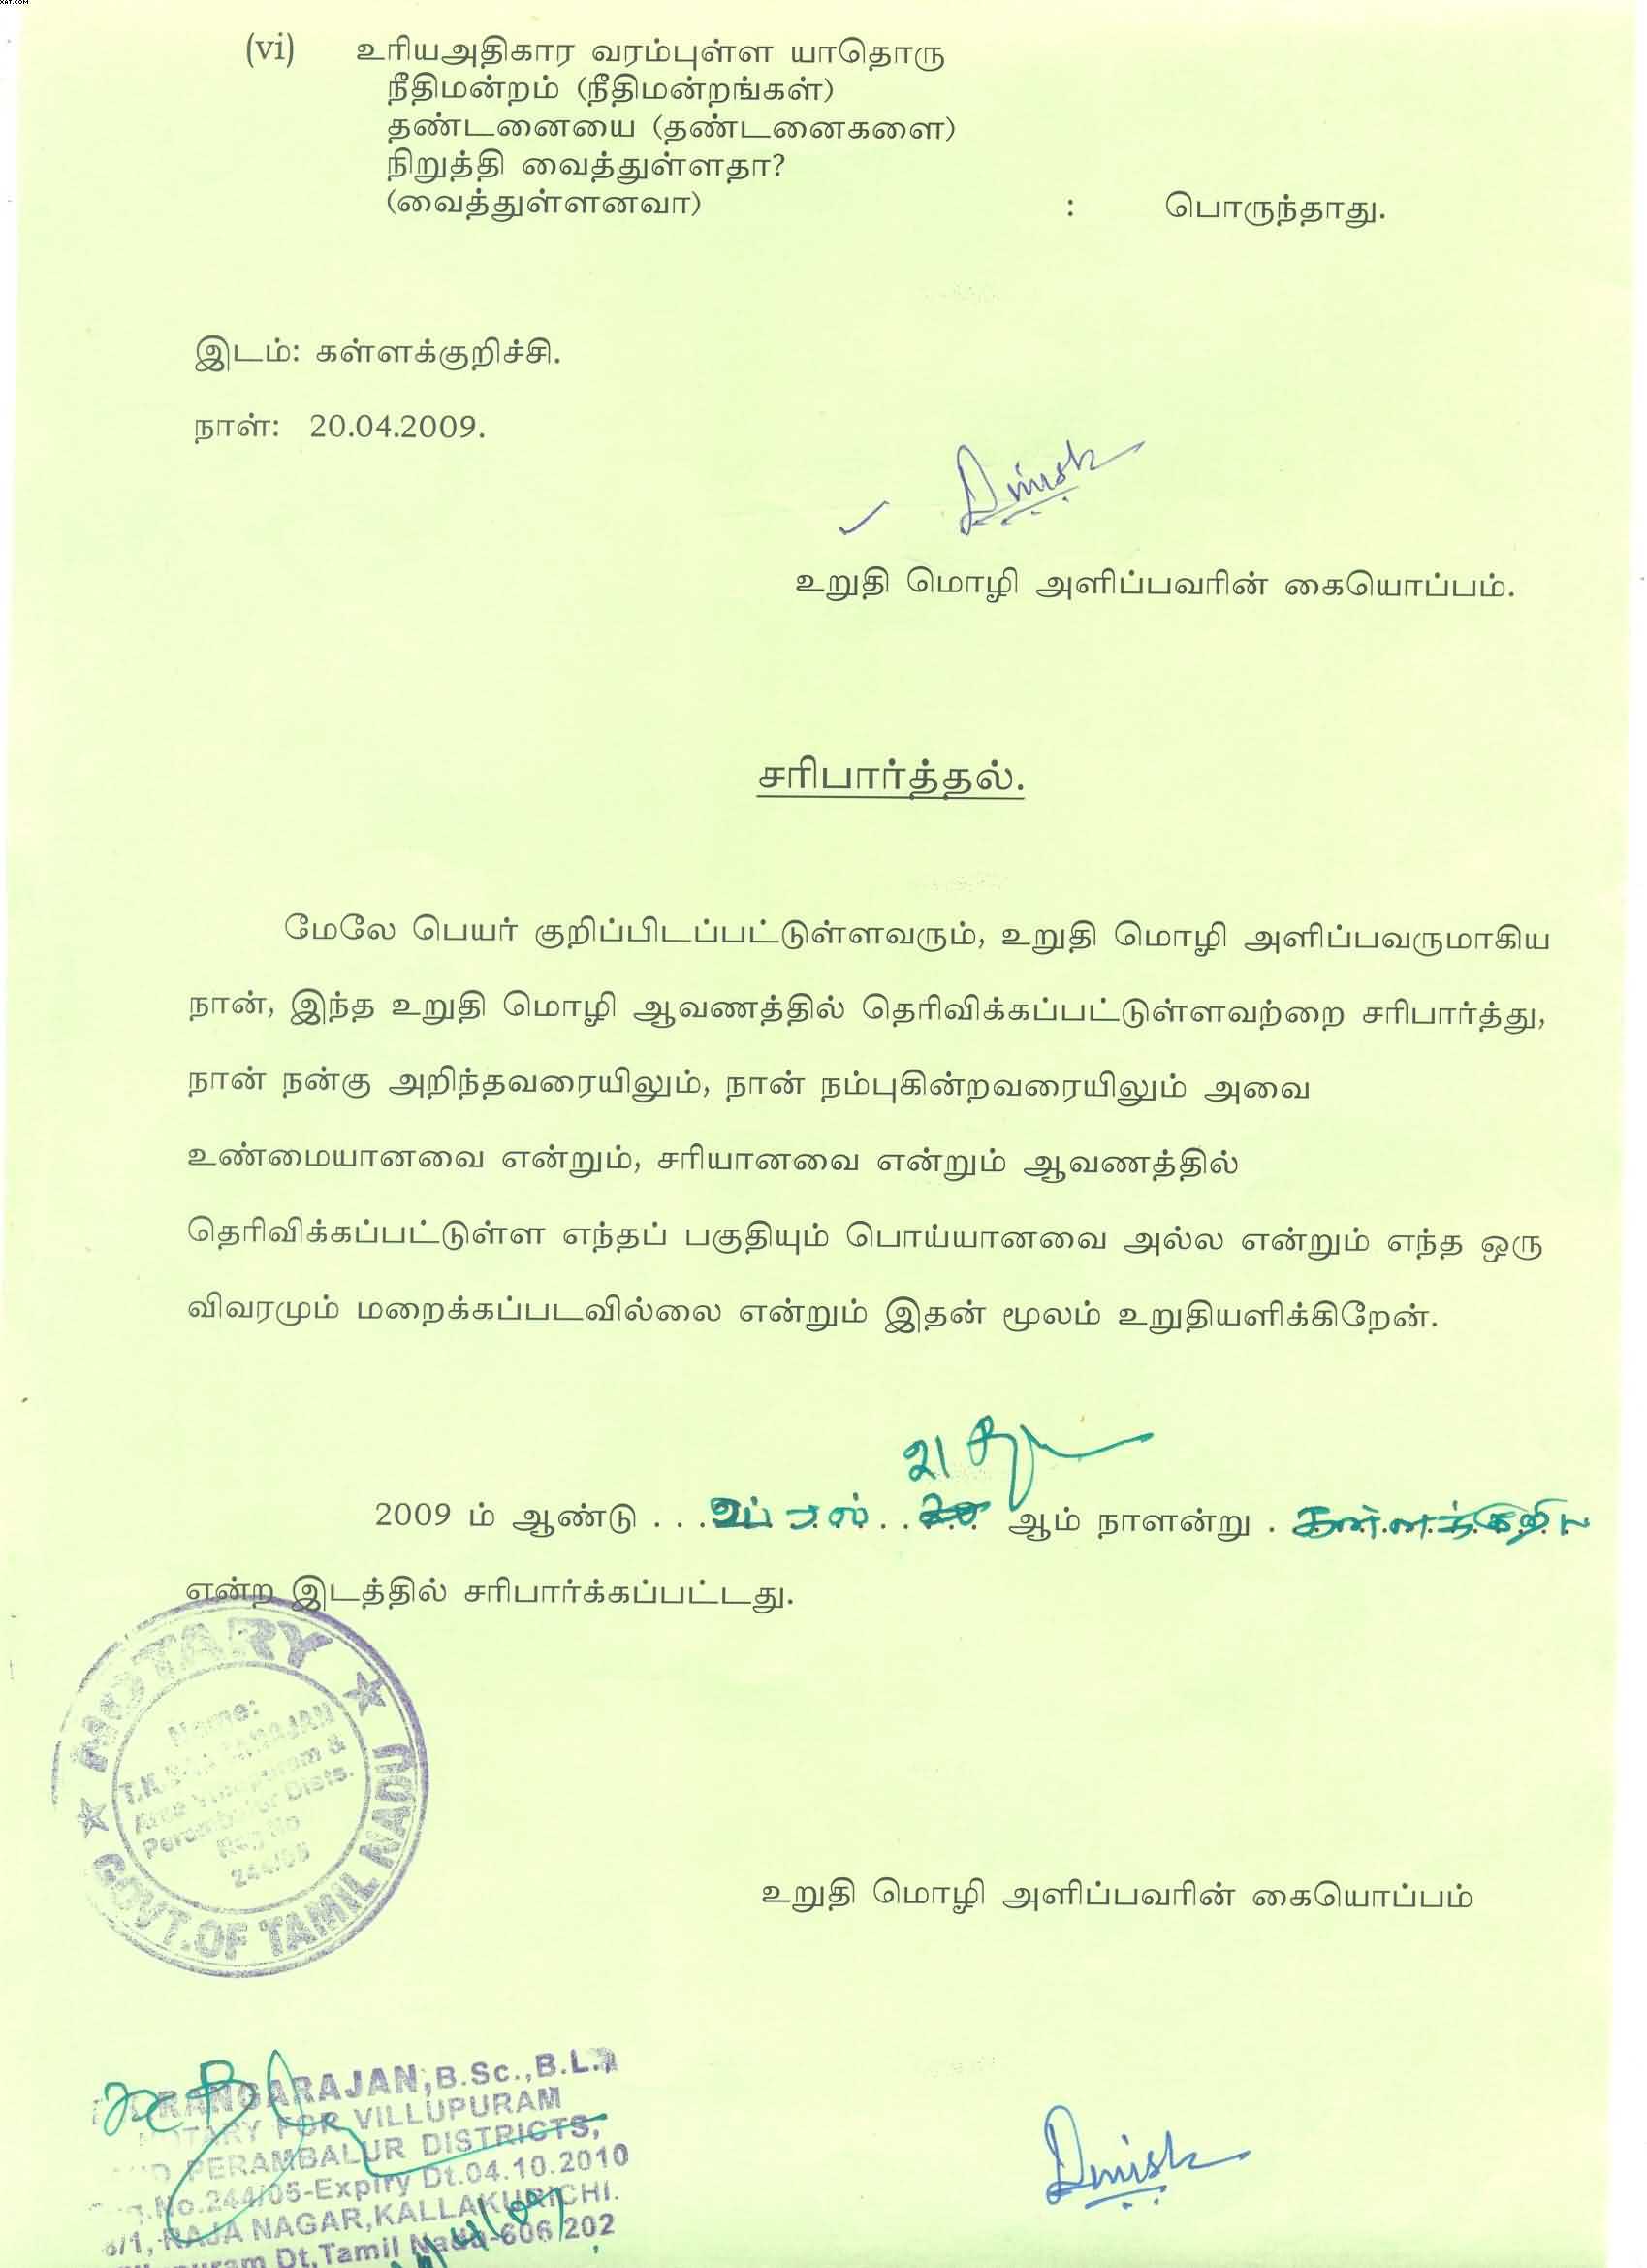 XAT.COM
(vi) உரியஅதிகார வரம்புள்ள யாதொரு
நீதிமன்றம் (நீதிமன்றங்கள்)
தண்டனையை (தண்டனைகளை)
நிறுத்தி வைத்துள்ளதா?
(வைத்துள்ளனவா) : பொருந்தாது.
இடம்: கள்ளக்குறிச்சி.
நாள்: 20.04.2009.
உறுதி மொழி அளிப்பவரின் கையொப்பம்.
சரிபார்த்தல்.
மேலே பெயர் குறிப்பிடப்பட்டுள்ளவரும், உறுதி மொழி அளிப்பவருமாகிய
நான், இந்த உறுதி மொழி ஆவணத்தில் தெரிவிக்கப்பட்டுள்ளவற்றை சரிபார்த்து,
நான் நன்கு அறிந்தவரையிலும், நான் நம்புகின்றவரையிலும் அவை
உண்மையானவை என்றும், சரியானவை என்றும் ஆவணத்தில்
தெரிவிக்கப்பட்டுள்ள எந்தப் பகுதியும் பொய்யானவை அல்ல என்றும் எந்த ஒரு
விவரமும் மறைக்கப்படவில்லை என்றும் இதன் மூலம் உறுதியளிக்கிறேன்.
21
2009 ம் ஆண்டு ... ஏப்ரல் ... ஆம் நாளன்று .
என்ற இடத்தில் சரிபார்க்கப்பட்டது.
NOTARY
Name:
Perambalur Dists.
Reg No
244/05
GOVT.OF TAMIL NADU
உறுதி மொழி அளிப்பவரின் கையொப்பம்
RANGARAJAN,B.Sc.,B.L.,
NOTARY FOR VILLUPURAM
PERAMBALUR DISTRICTS,
No.244/05-Expiry Dt.04.10.2010
RAJA NAGAR,KALLAKURICHI.
Dt,Tamil Nadu-606 202